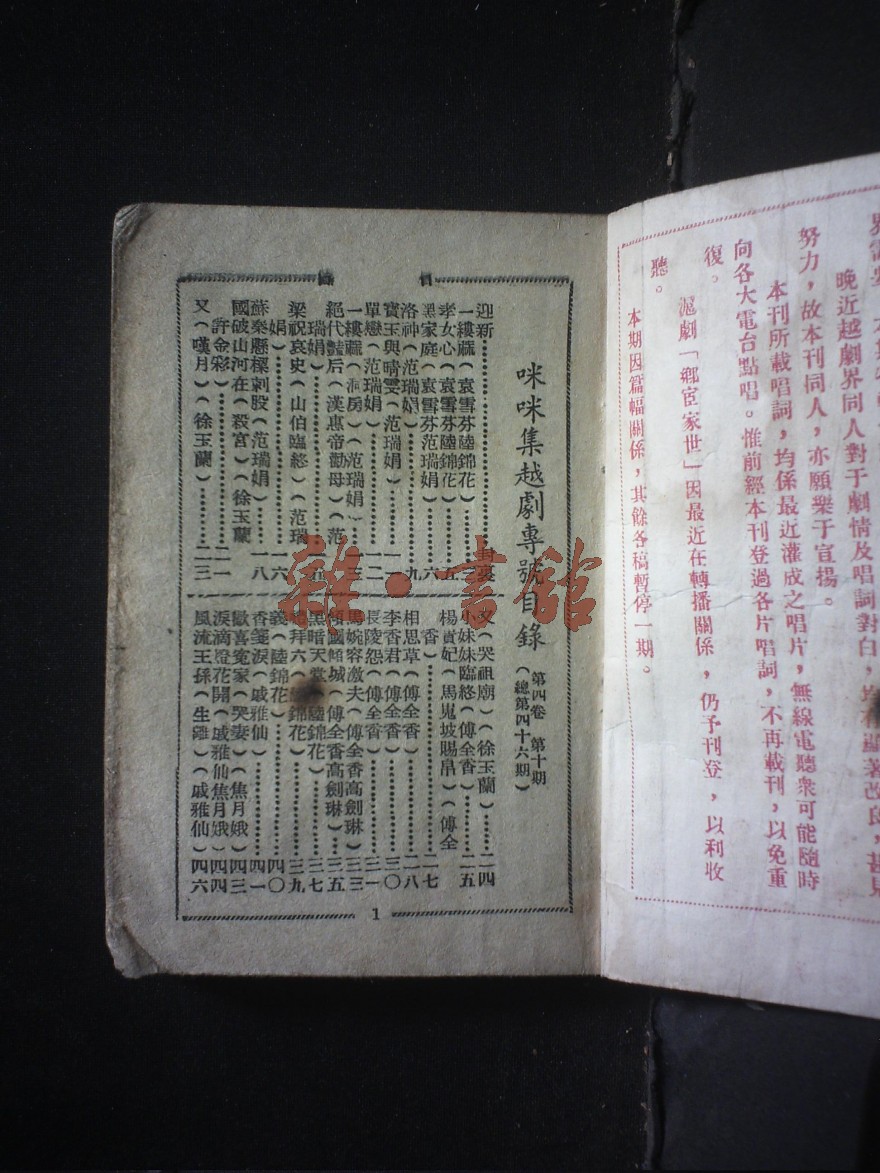 界需要
晚近越劇界同人對于劇情及唱詞對白，均有顯著改良，甚見
努力，故本刊同人，亦願衆于宣揚。
本刊所載唱詞，均係最近灌成之唱片，無線電聽衆可能隨時
向各大電台點唱。惟前經本刊登過各片唱詞，不再載刊，以免重
復。
滬劇「鄉宦家世」因最近在轉播關係，仍予刊登，以利收
聽。
本期因篇幅關係，其餘各稿暫停一期。
目錄
咪咪集越劇專號目錄（第四卷 第十期 總第四十六期）
迎新………封裏
一縷蔴（袁雪芬陸錦花）
孝女心（袁雪芬陸錦花）…五
黑家庭（袁雪芬范瑞娟）…六
洛神（范瑞娟）………九
寶玉與晴雯（范瑞娟）…一一
單戀（范瑞娟）………一二
一縷蔴（洞房）（范瑞娟）…三
絕代豔后（漢惠帝勸母）（范
瑞娟）………五
梁祝哀史（山伯臨終）（范瑞
娟）………一六
蘇秦懸樑刺股（范瑞娟）…一八
國破山河在（殺宮）（徐玉蘭
許金彩）………二一
又（嘆月）（徐玉蘭）………二三
又（哭祖廟）（徐玉蘭）…二四
小妹妹臨終（傅全香）…二五
楊貴妃（馬嵬坡賜帛）（傅全
香）………二七
相思草（傅全香）………二八
李香君（傅全香）………三〇
長陵怨（傅全香）………三一
馬婉容激夫（傅全香高劍琳）三三
傾國傾城（傅全香高劍琳）…三五
黑暗天堂（陸錦花）………三七
禮拜六（陸錦花）………三九
義（陸錦花）………四〇
香箋淚（戚雅仙）………四一
歡喜寃家（哭妻）（焦月娥）四三
淚滴燈花開（戚雅仙焦月娥）四四
風流王孫（生離）（戚雅仙）四六
1
雜·書館